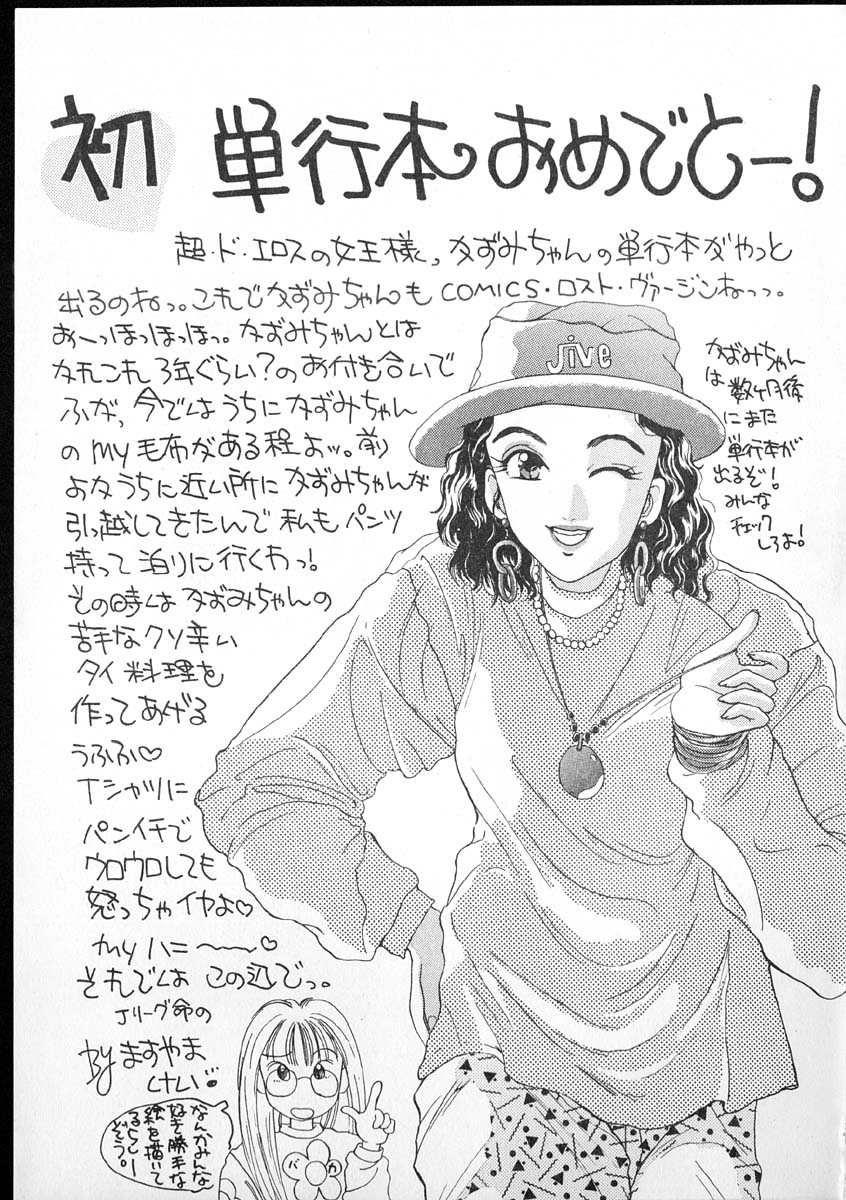 初 単行本おめでとー!
超・ド・エロスの女王様っ、かずみちゃんの単行本がやっと
出るのねっ。これでかずみちゃんも COMICS・ロスト・ヴァージンねっっ。
おーっほっほっほっ。かずみちゃんとは
かれこれ3年ぐらい?のお付き合いで
ふが、今ではうちにかずみちゃん
のmy毛布がある程よッ。前
よかうちに近い所にかずみちゃんが
引っ越してきたんで私もパンツ
持って泊りに行くわっ!
その時はかずみちゃんの
苦手なクソ辛い
タイ料理を
作ってあげる
うふふ♡
Tシャツに
パンイチで
ウロウロしても
怒っちゃイヤよ♡
my ハニ〜〜♡
それでは この辺でっ。
Jリーグ命の
By ますやま
けい
jive
かずみちゃん
は数ヶ月後
にまた
単行本が
出るぞ!
みんな
チェック
しろよ!
なんかみんな
好き勝手な
絵を描いて
るらしー
ぞう。
バカ